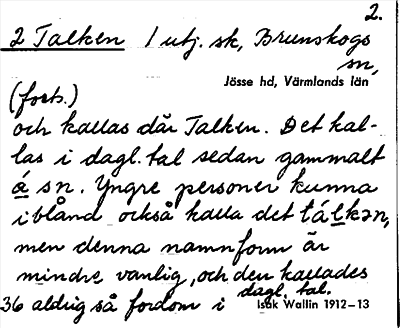 2.
2 Talken 1 utj. sk, Brunskogs
sn,
Jösse hd, Värmlands län
(forts.)
och kallas där Talken. Det kal-
las i dagl. tal sedan gammalt
á sn. Yngre personer kunna
ibland också kalla det tálkən,
men denna namnform är
mindre vanlig, och den kallades
36 aldrig så fordom i dagl. tal.
Isak Wallin 1912-13